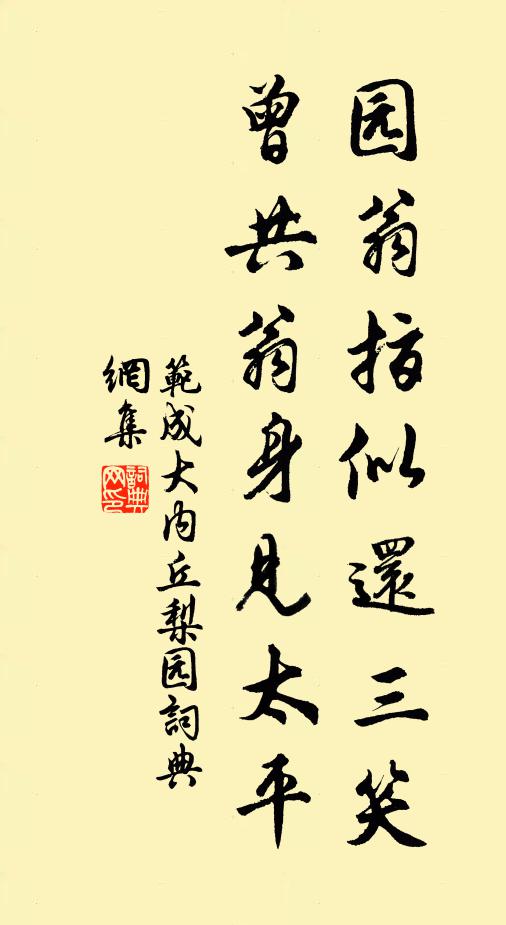 园翁指似還三笑
曾共翁身見太平
範成大内丘梨园詞典
網集
詞典网印